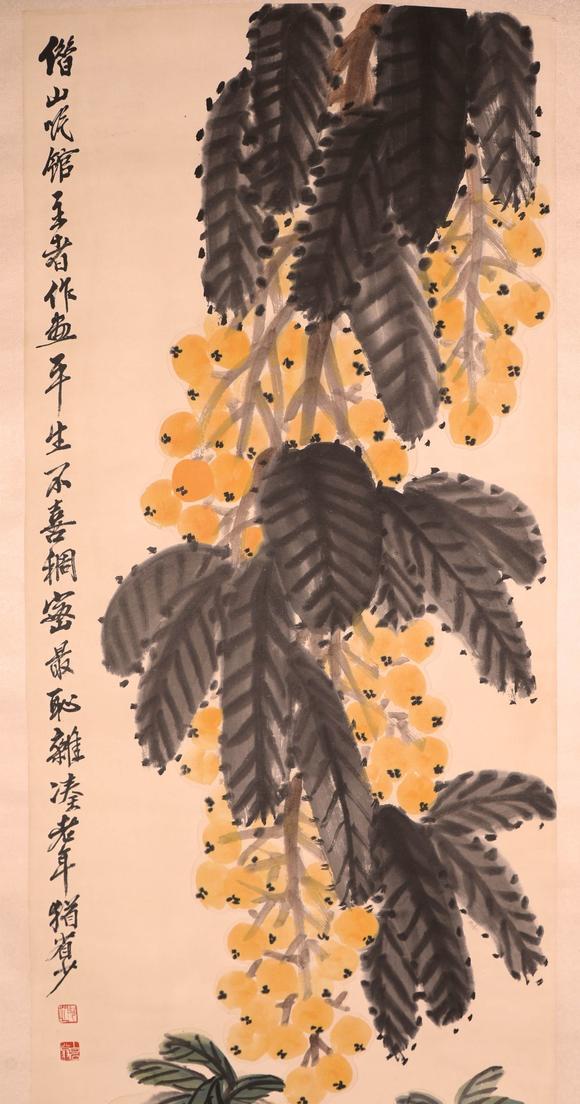 借山吟館主者作画平生不喜稠密最恥雜湊老年猶省少